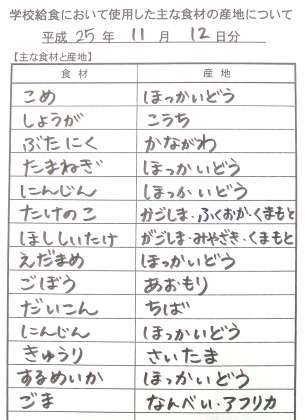 学校給食において使用した主な食材の産地について
平成 25 年 11 月 12 日分
【主な食材と産地】
食材 産地
こめ ほっかいどう
しょうが こうち
ぶたにく かながわ
たまねぎ ほっかいどう
にんじん ほっかいどう
たけのこ かごしま・ふくおか・くまもと
ほししいたけ かごしま・みやざき・くまもと
えだまめ ほっかいどう
ごぼう あおもり
だいこん ちば
にんじん ほっかいどう
きゅうり さいたま
するめいか ほっかいどう
ごま なんべい・アフリカ